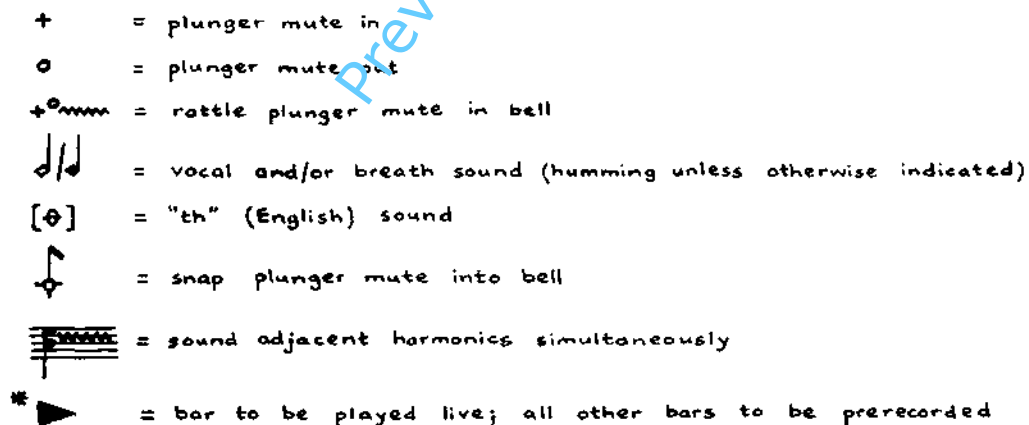 + = plunger mute in
o = plunger mute out
+o = rattle plunger mute in bell
/ = vocal and/or breath sound (humming unless otherwise indicated)
[θ] = "th" (English) sound
= snap plunger mute into bell
= sound adjacent harmonics simultaneously
* ▶ = bar to be played live; all other bars to be prerecorded
Prev